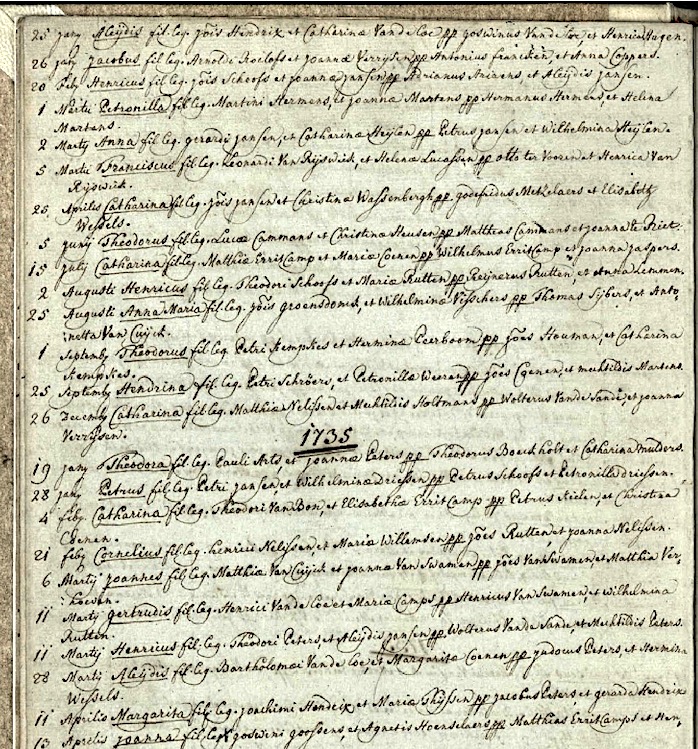 25 jany Aleijdis fil. leg. jõis Hendrix et Catharinæ Van de Loe pp goswinus Van de Loe et Henrica Hugen.
26 jany jacobus fil leg. Arnoldi Roelofs et joannæ Verrijsen pp Antonius francken, et Anna Coppers.
20 feby Henricus fil. leg. jõis Schoofs et joannæ jansen pp Adrianus et Aleijdis jansen.
1 Martii Petronilla fil. leg. Martini Hermens, et joannæ Martens pp Hermanus Hermens et Helena
Martens.
2 Martij Anna fil. leg. gerardi jansen, et Catharinæ Heijlen pp Petrus jansen et Wilhelmina Heijlen.
5 Martii Franciscus fil. leg. Leonardi Van Rijswick, et Helenæ Lucassen pp otto ter Vooren et Henrica Van
Rijswick.
25 Aprilis Catharina fil. leg. jõis jansen et Christinæ Wassenbergh pp. godefridus Metzelaers et Elisabeth
Wessels.
5 junij Theodorus fil. leg. Lucæ Cammans et Christinæ Heusen pp Matthias Cammans et joanna te Riet.
15 julij Catharina fil. leg. Matthiæ ErritCamp et Mariæ Coenen pp Wilhelmus ErritCamp et joanna jaspers.
2 Augusti Henricus fil. leg. Theodori Schoofs et Mariæ Rutten pp Reijnerus Rutten, et Anna Lemmen.
25 Augusti Anna Maria fil. leg. jõis groensdonck, et Wilhelminæ Visschers pp Thomas Sijbers, et Anto-
inetta Van Cuijck.
1 Septemby Theodorus fil. leg. Petri Kempkes et Herminæ Peerboom pp jões Houman, et Catharina
Kempkes.
25 Septemby Hendrina fil. leg. Petri Schröers, et Petronillæ Weeren pp jões Coenen, et mechtildis Martens.
26 Decemby Catharina fil. leg. Matthiæ Nelissen et Mechtildis Holtmans pp Wolterus Van de Sande, et joanna
Verrijssen.
1735
19 jany Theodora fil. leg. Pauli Arts et joannæ Peters pp Theodorus Boeckholt et Catharina mulders.
28 jany Petrus fil. leg. Petri jansen, et Wilhelminæ Driessen pp Petrus Schoofs et Petronilla driessen.
4 feby Catharina fil. leg. Theodori Van Bon, et Elisabethæ ErritCamp pp Petrus Kielen, et Christina
Coenen.
21 feby Cornelius fil. leg. henrici Nelissen, et Mariæ Willemsen pp jões Rutten et joanna Nelissen.
6 Martij joannes fil. leg. Matthiæ Van Cuijck et joannæ Van Swamen pp jões Van Swamen, et Matthia Ver-
:hoeven.
11 Martij gertrudis fil. leg. Henrici Van de Loe et Mariæ Camps pp Henricus Van Swamen, et Wilhelmina
Rutten.
11 Martij Henricus fil. leg. Theodori Peters, et Aleijdis jansen pp. Wolterus Van de Sande, et Mechtildis Peters.
28 Martij Aleijdis fil. leg. Bartholomæi Van de Loe, et Margarita Coenen pp judocus Peters, et Hermina
Wessels.
11 Aprilis Margarita fil. leg. joachimi Hendrix et Mariæ Thijssen pp jacobus Peters et gerarda Hendrix
13 Aprilis joanna fil. leg. goswini goossens, et Agnetis Hoenselaers pp Matthias ErritCamps et Hen,